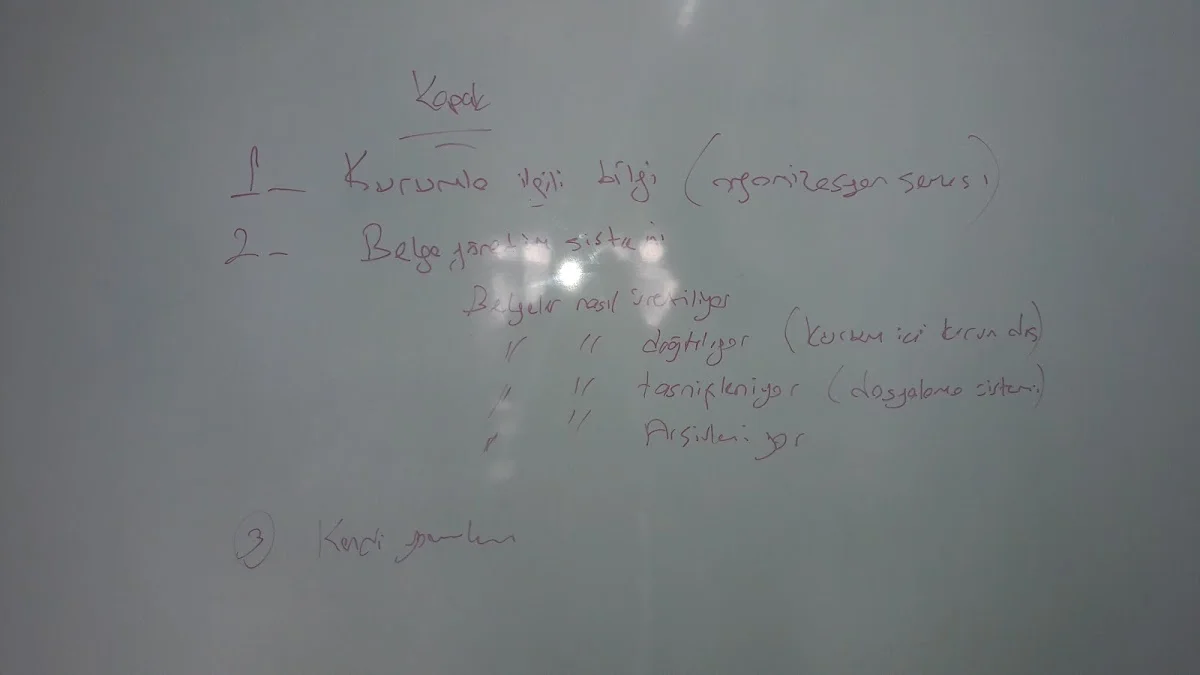 Kapak
1- Kurumla ilgili bilgi (organizasyon şeması)
2- Belge yönetim sistemi
Belgeler nasıl üretiliyor
" " dağıtılıyor (kurum içi kurum dışı)
" " tasnifleniyor (dosyalama sistemi)
" " Arşivleniyor
3 Kendi yorumları